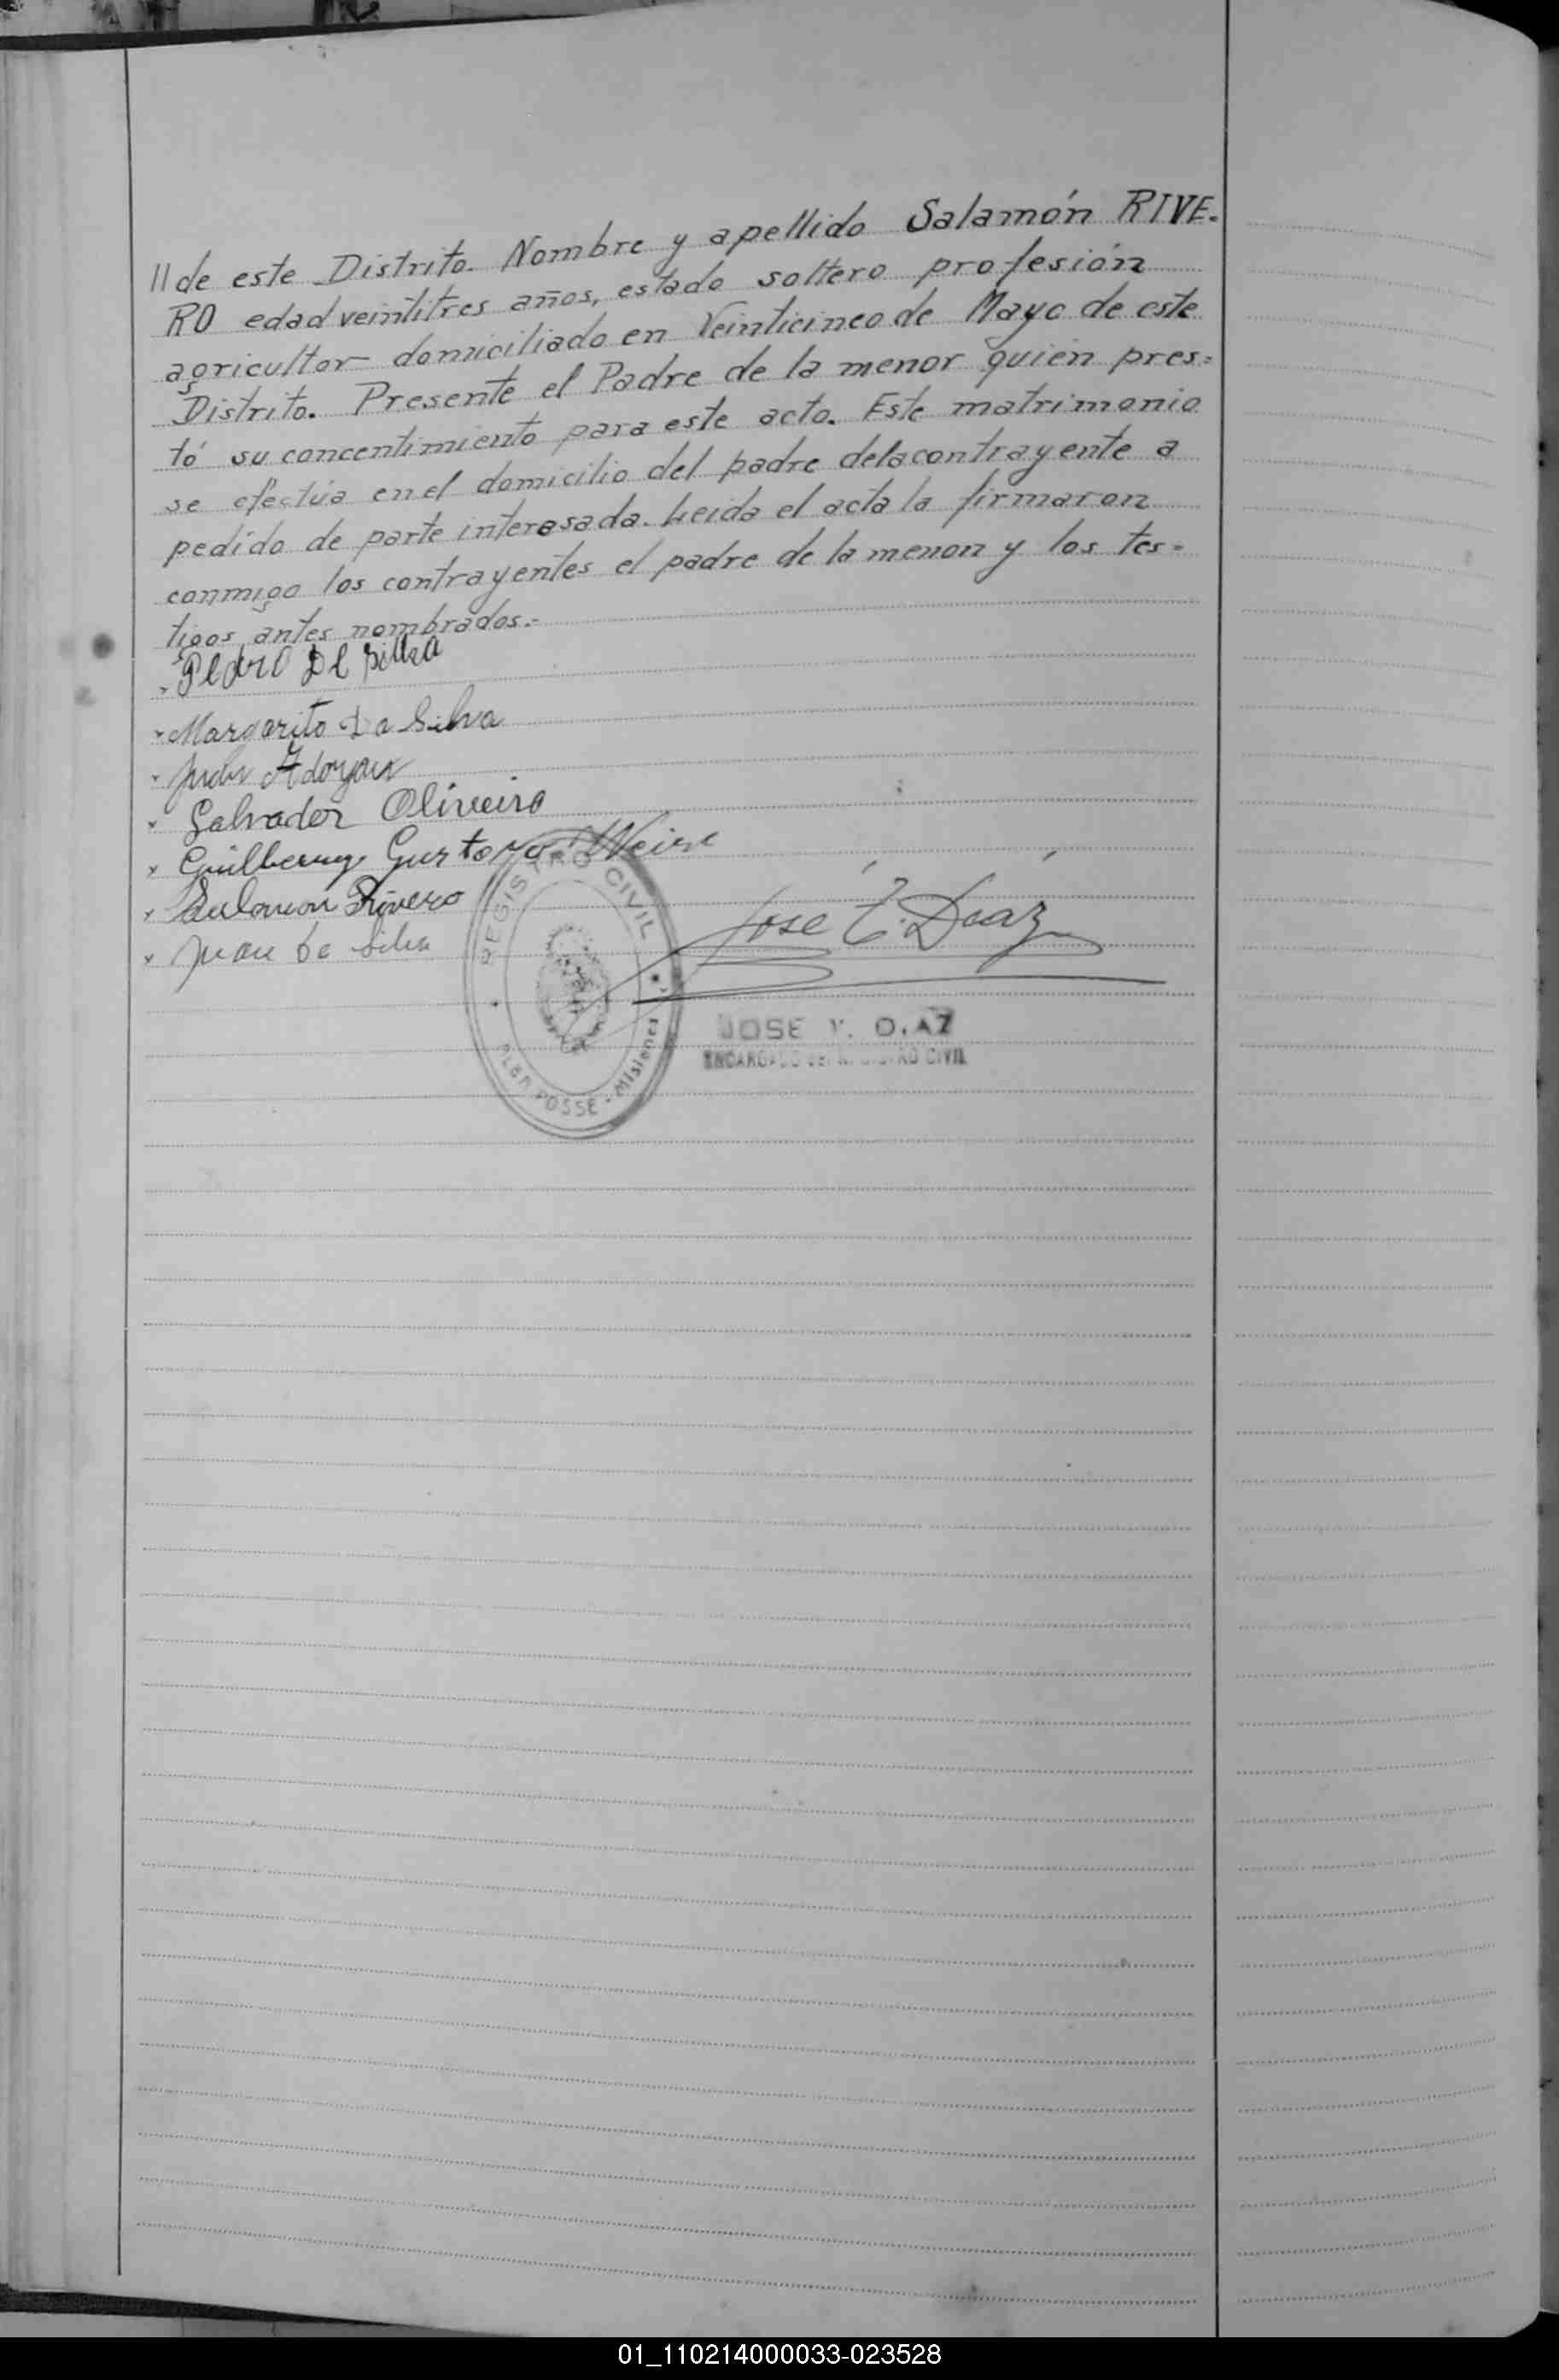 11 de este Distrito. Nombre y apellido Salamón RIVE.
RO edad veintitres años, estado soltero profesión
agricultor domiciliado en Veinticinco de Mayo de este
Distrito. Presente el Padre de la menor quién pres=
tó su concentimiento para este acto. Este matrimonio
se efectúa en el domicilio del padre de la contrayente a
pedido de parte interesada. Leida el acta la firmaron
conmigo los contrayentes el padre de la menon y los tes=
tigos antes nombrados.-
Pedro De silva
Margarito Da Silva
Juan
Salvador Oliveira
Gustavo
Salomon Rivero
Juan De Silva
José Diaz
REGISTRO CIVIL
POSSE - Misiones
JOSE V. DIAZ
ENCARGADO DEL REGISTRO CIVIL
01_110214000033-023528